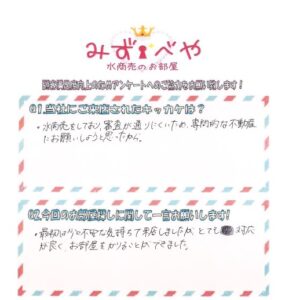 みず・べや
水商売のお部屋
顧客満足度向上のためアンケートへのご協力をお願い致します!
Q1.当社にご来店されたキッカケは?
・水商売をしており、審査が通りにくいため、専門的な不動産
にお願いしようと思ったから。
Q2.今回のお部屋探しに関して一言お願いします!
・最初は少し不安な気持ちで来店しましたが、とても 対応
が良く お部屋をかりることができました。